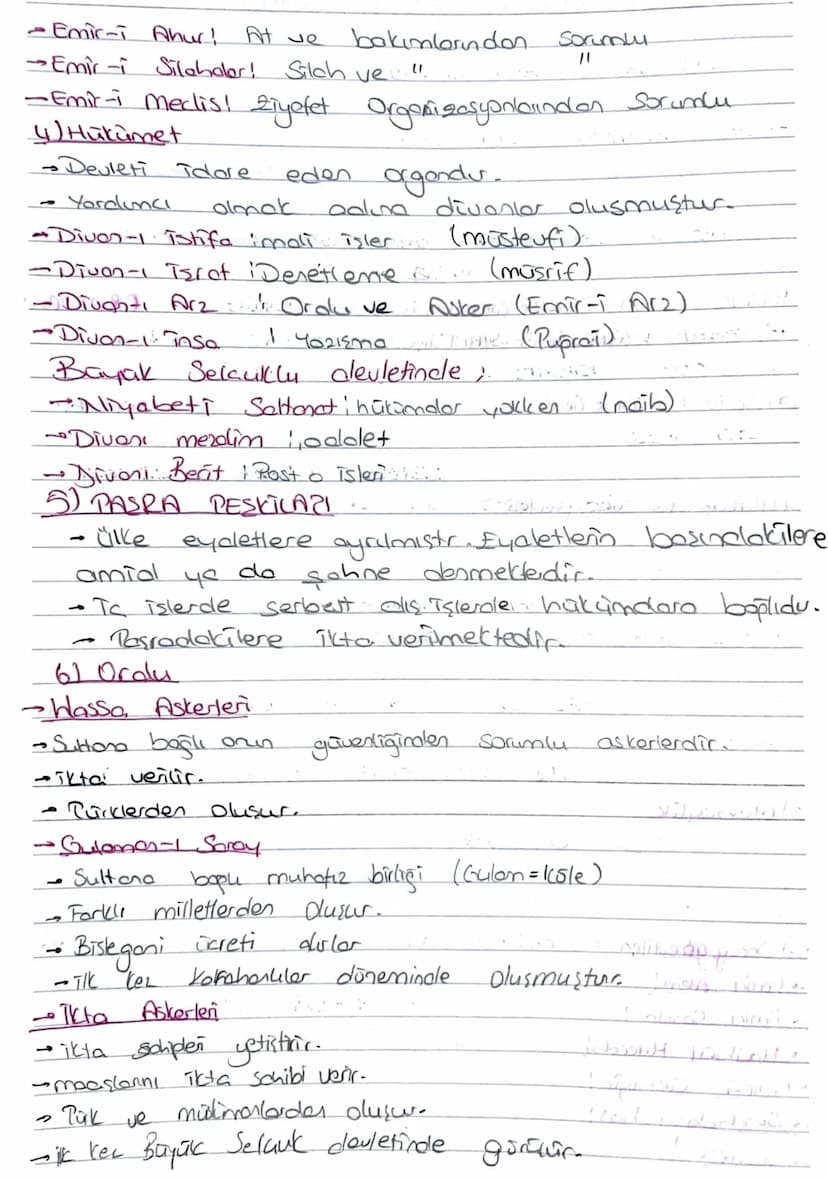 → Emir-i Ahur! At ve bakımlarından sorumlu
→ Emir-i Silahdar! Silah ve " "
→ Emir-i Meclis! Ziyafet Organizasyonlarından Sorumlu
4) Hükümet
→ Devleti idare eden organdır.
→ Yardımcı olmak adına divanlar oluşmuştur.
→ Divan-ı istifa : mali işler (müstevfi)
→ Divan-ı İsraf : Denetleme (müsrif)
→ Divan-ı Arz : Ordu ve Asker (Emir-i Arz)
→ Divan-ı İnsa : Yazısma
Büyük Selçuklu devletinde ;
→ Niyabeti Saltanat : hükümdar yokken (naib)
→ Divanı mezalim : adalet
→ Divanı Berit : Posta işleri
5) TAŞRA TEŞKİLATI
→ Ülke eyaletlere ayrılmıştır. Eyaletlerin basındakilere
amid ya da şahne denmektedir.
→ İc islerde serbest dış işlerde hükümdara bağlıdır.
→ Tasradakilere ikta verilmektedir.
6) Ordu
→ Hassa Askerleri
→ Sultana bağlı onun güvenliğinden sorumlu askerlerdir.
→ iktai verilir.
→ Türklerden oluşur.
→ Gulaman-ı Saray
→ Sultana bağlı muhafız birliği (Gulam = Köle)
→ Farklı milletlerden oluşur.
→ Bistegani ücreti alırlar
→ ilk kez Karahanlılar döneminde oluşmuştur.
→ İkta Askerleri
→ ikta sahipleri yetiştirir.
→ maaşlarını ikta sahibi verir.
→ Türk ve müslümanlardan oluşur.
→ ilk kez Büyük Selçuk devletinde görülür.